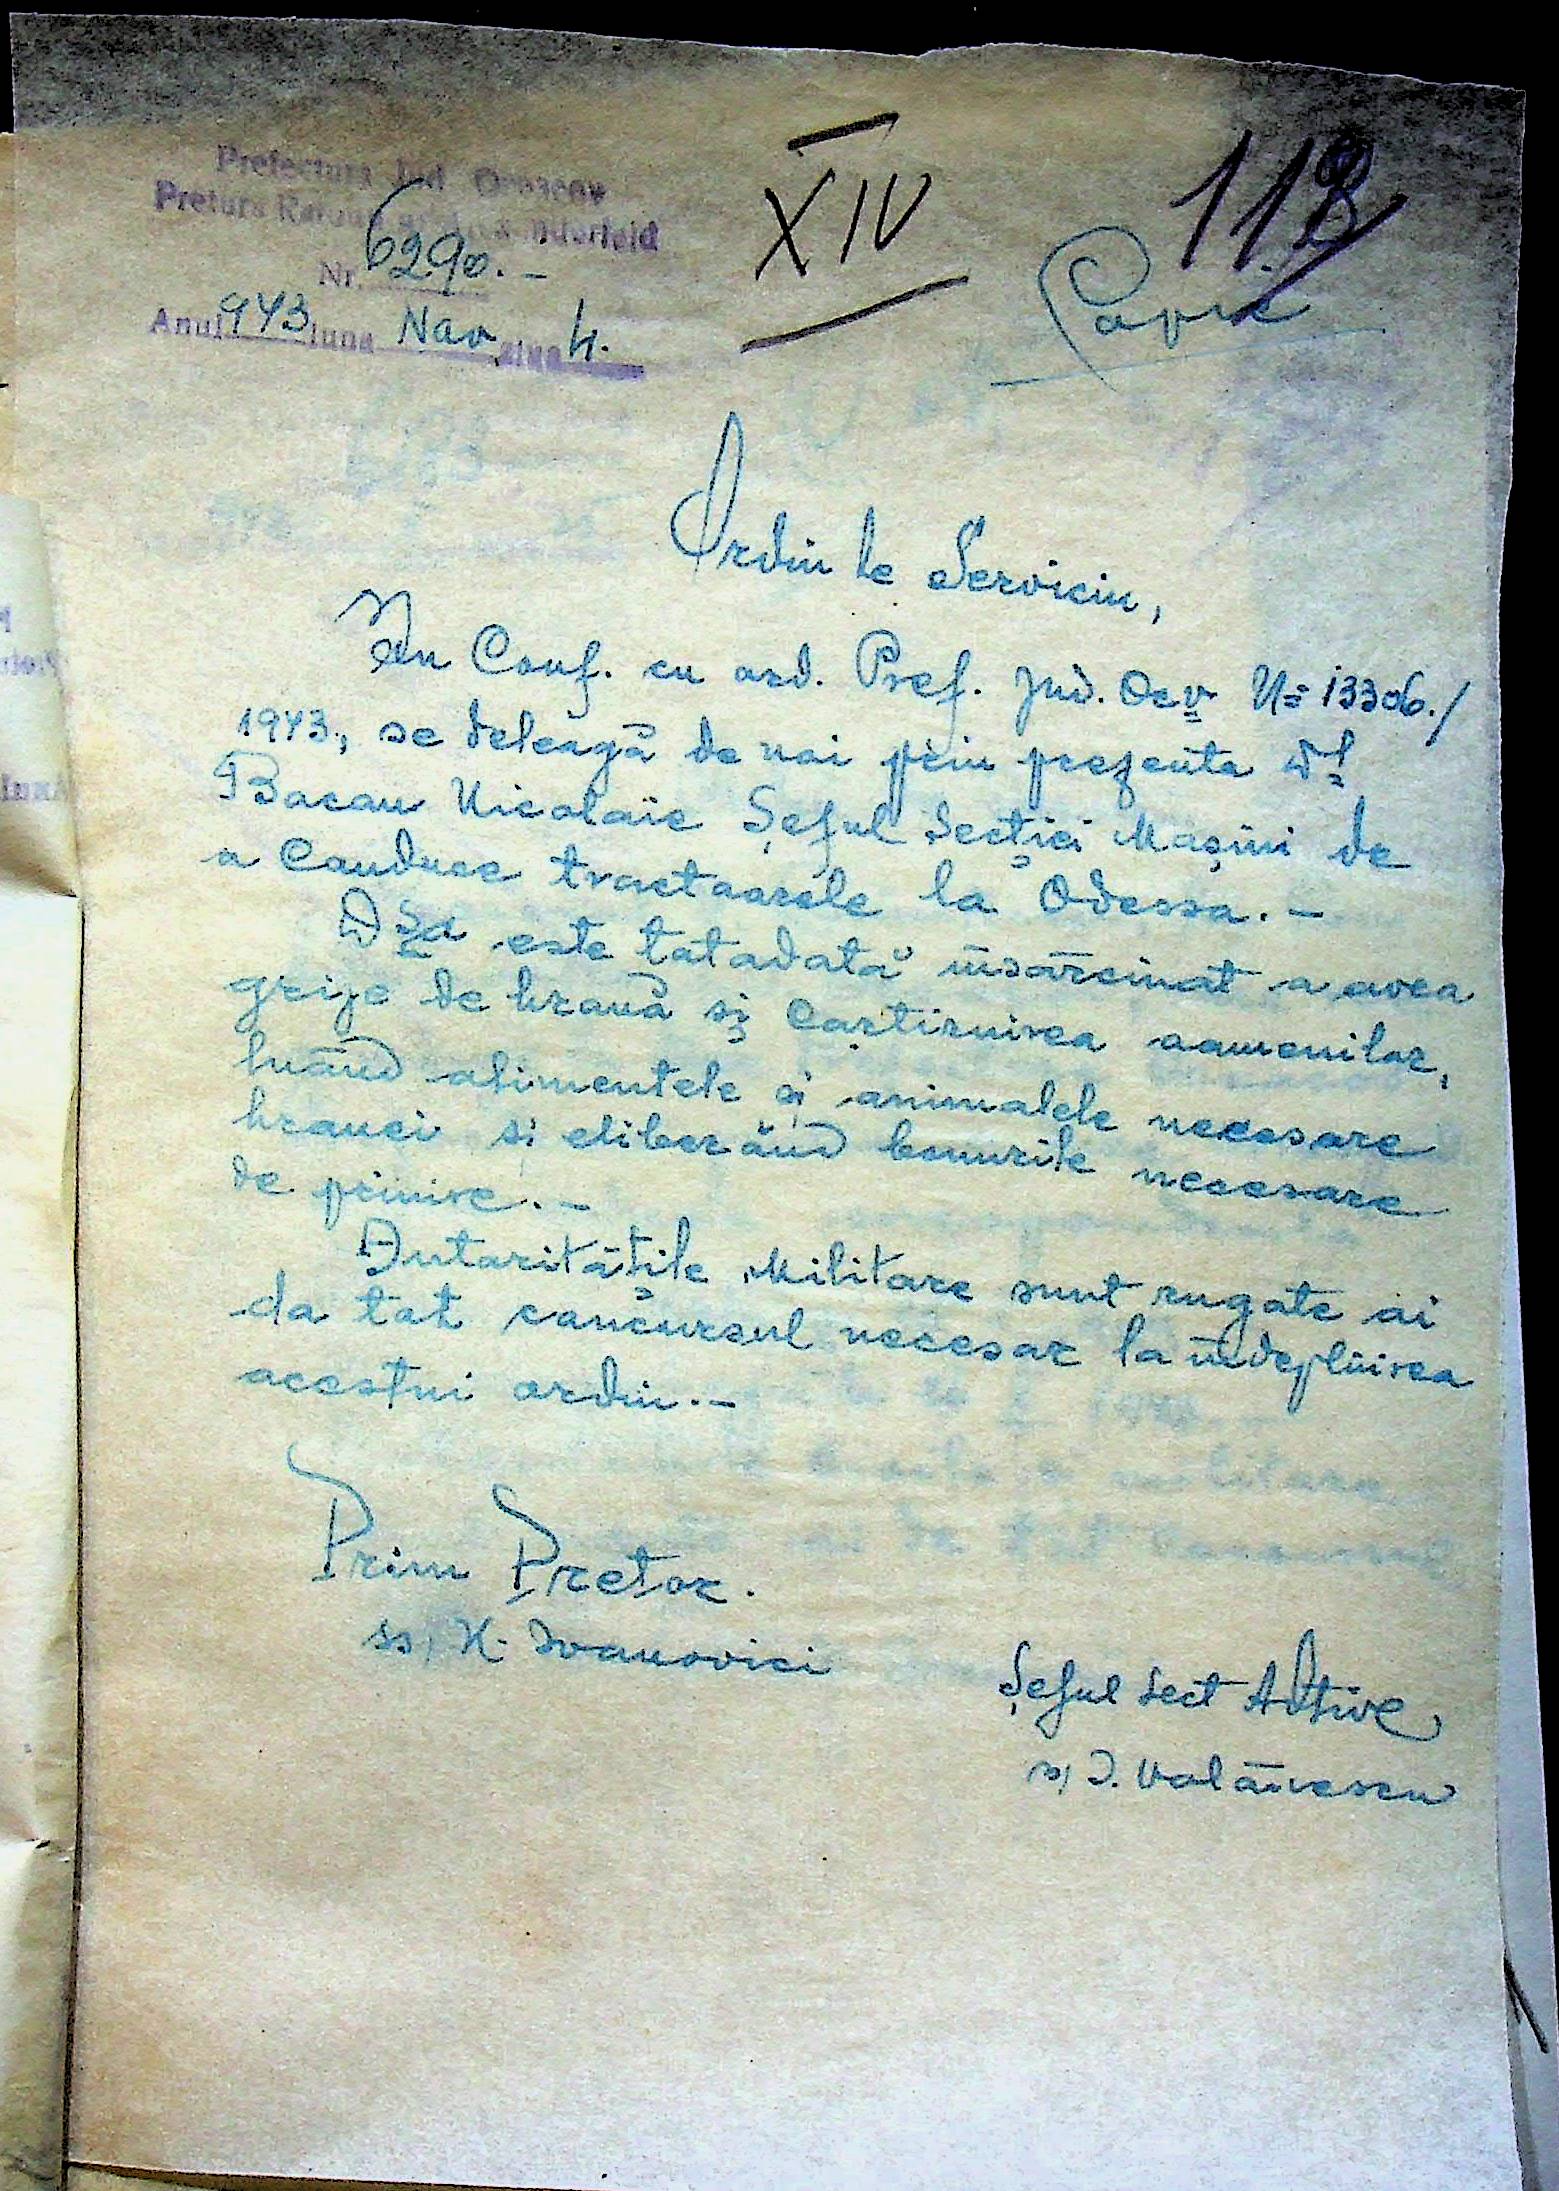 Prefectura Jud Oceacov
Pretura Raionului Landau
Nr. 6290.-
Anul 943 luna Nov ziua 4.
XIV
118
Copie
Ordin de Serviciu,
In Conf. cu ord. Pref. Jud. Ocv No 13306./
1943., se deleagă de noi prin prezenta Dl
Bacau Nicolaie Şeful Secţiei Maşini de
a Conduce tractoarele la Odessa.-
D Sa este totadată însărcinat a avea
grije de hrană şi cartiruirea oamenilor,
luând alimentele şi animalele necesare
hranei si eliberând bonurile necesare
de primire.-
Autorităţile Militare sunt rugate ai
da tot concursul necesar la îndeplinirea
acestui ordin.-
Prim Pretor.
ss, N. Ivanovici
Şeful Sect
ss, I.